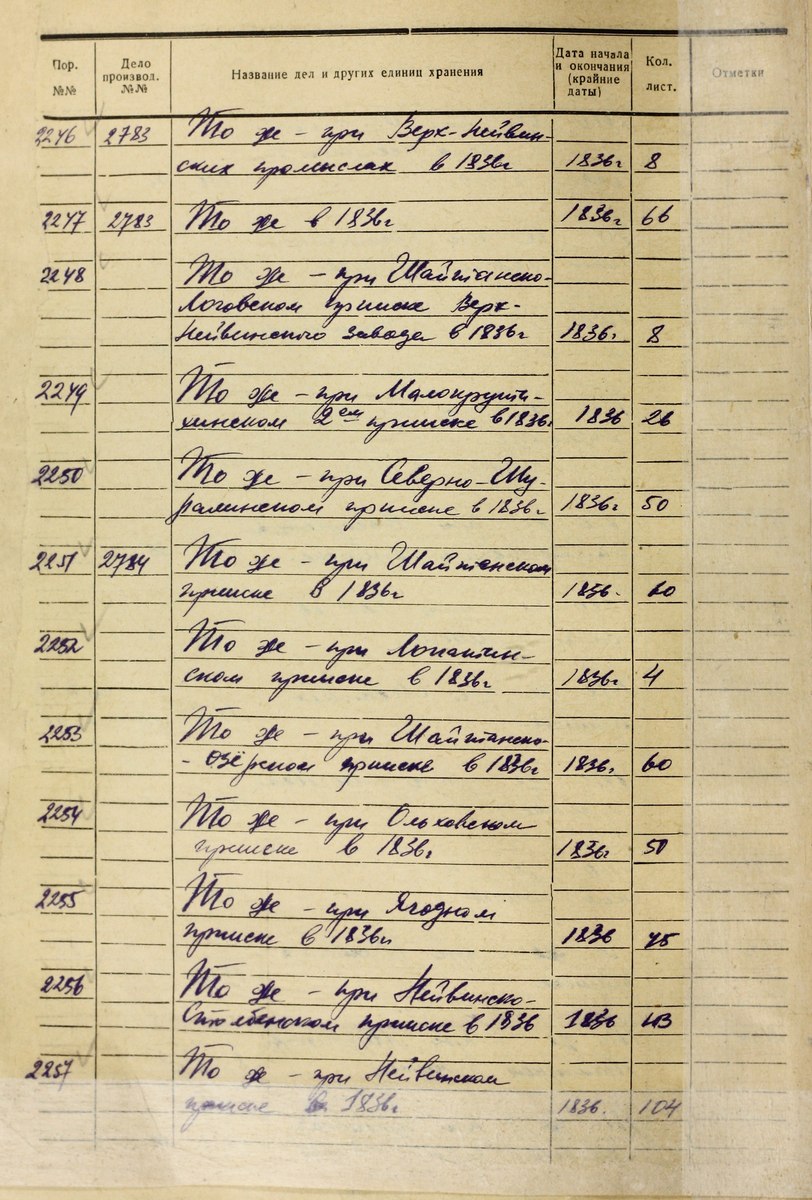 Пор. №№ Дело производ. №№ Название дел и других единиц хранения Дата начала и окончания (крайние даты) Кол. лист. Отметки
2246 2783 То же – при Верх-Нейвин-
ских промыслах в 1836г 1836г 8
2247 2783 То же в 1836г 1836г 66
2248 То же – при Шайтанско-
Логовском прииске Верх-
Нейвинского завода в 1836г 1836г. 8
2249 То же – при Малокрути-
хинском 2ем прииске в 1836г 1836 26
2250 То же – при Северно-Шу-
ралинском прииске в 1836г 1836г. 50
2251 2784 То же – при Шайтанском
прииске в 1836г 1836. 60
2252 То же – при Лопатин-
ском прииске в 1836г 1836г 4
2253 То же – при Шайтанско-
-Озёрном прииске в 1836г 1836г. 60
2254 То же – при Ольховском
прииске в 1836г 1836г 50
2255 То же – при Ягодном
прииске в 1836г 1836 75
2256 То же – при Нейвинско-
Столбенском прииске в 1836 1836 43
2257 То же – при Нейвинском
прииске в 1836г 1836. 104